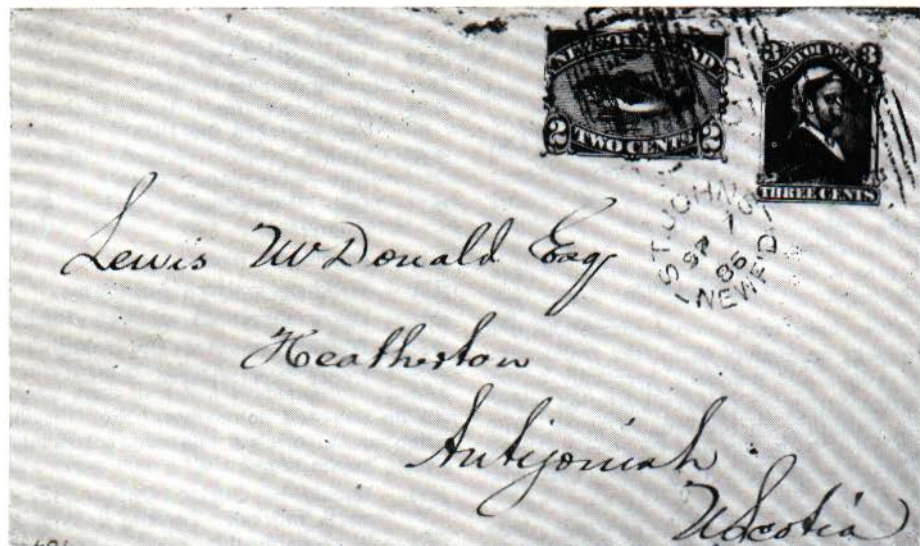 NEWFOUNDLAND
2 TWO CENTS 2
3 3
NEWFOUNDLAND
THREE CENTS
ST JOHN'S
SP 10
86
NEWF'D
Lewis McDonald Esq
Heatherton
Antigonish
N Scotia